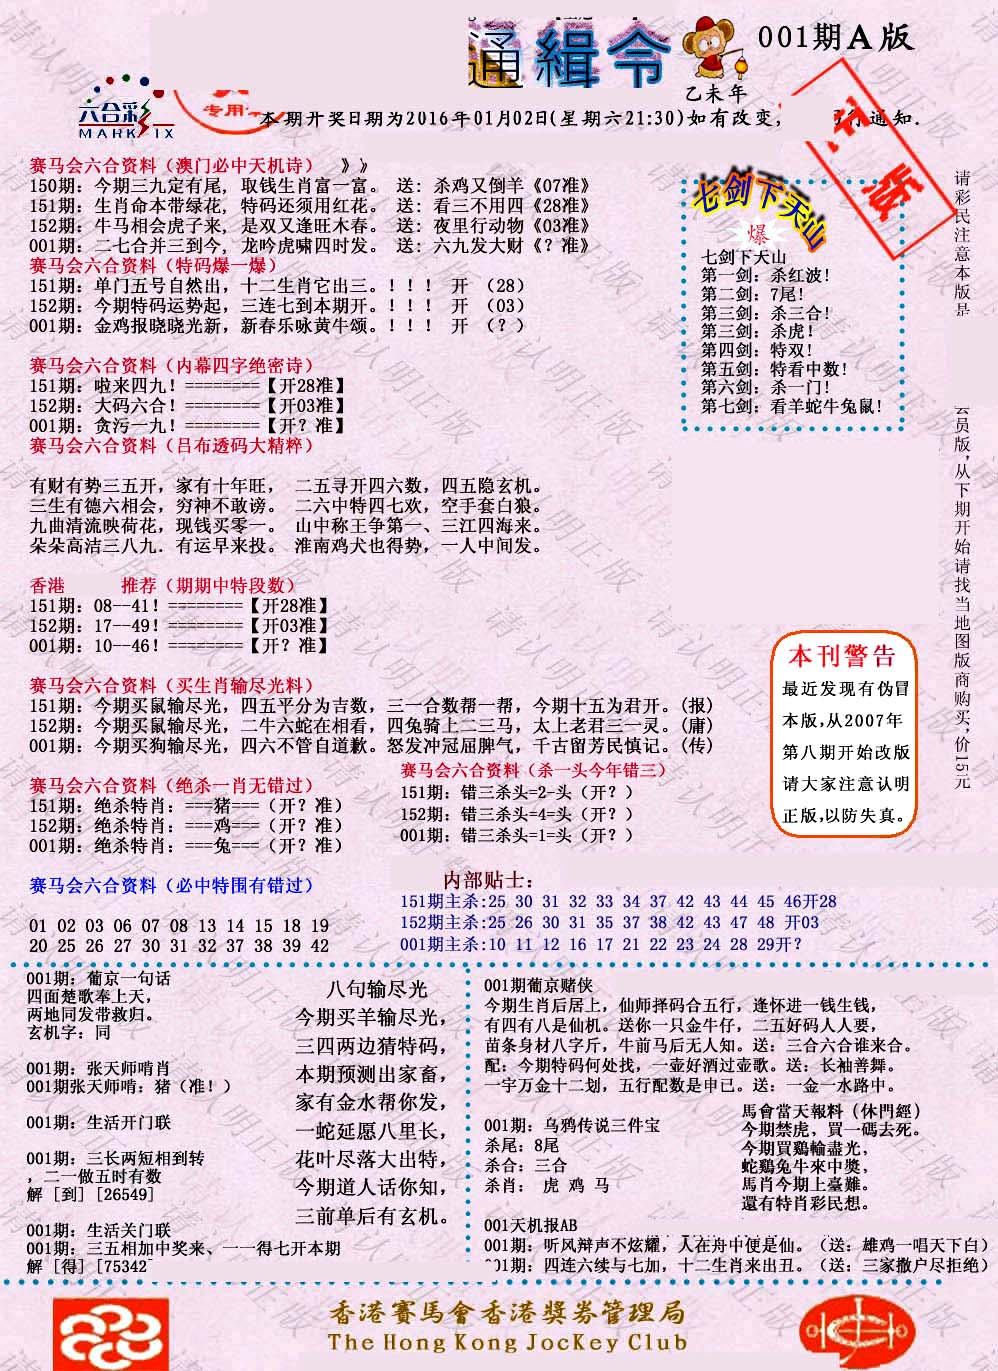 通緝令
001期A版
乙未年
六合彩
MARK SIX
专用
本期开奖日期为2016年01月02日(星期六21:30)如有改变,
通知.
赛马会六合资料（澳门必中天机诗） 》》
150期：今期三九定有尾, 取钱生肖富一富。 送：杀鸡又倒羊《07准》
151期：生肖命本带绿花, 特码还须用红花。 送：看三不用四《28准》
152期：牛马相会虎子来, 是双又逢旺木春。 送：夜里行动物《03准》
001期：二七合并三到今, 龙吟虎啸四时发。 送：六九发大财《？准》
赛马会六合资料（特码爆一爆）
151期：单门五号自然出，十二生肖它出三。！！！ 开 （28）
152期：今期特码运势起，三连七到本期开。！！！ 开 （03）
001期：金鸡报晓晓光新，新春乐咏黄牛颂。！！！ 开 （？）
赛马会六合资料（内幕四字绝密诗）
151期：啦来四九！========【开28准】
152期：大码六合！========【开03准】
001期：贪污一九！========【开？准】
赛马会六合资料（吕布透码大精粹）
有财有势三五开，家有十年旺， 二五寻开四六数，四五隐玄机。
三生有德六相会，穷神不敢谤。 二六中特四七欢，空手套白狼。
九曲清流映荷花，现钱买零一。 山中称王争第一、三江四海来。
朵朵高洁三八九．有运早来投。 淮南鸡犬也得势，一人中间发。
香港 推荐（期期中特段数）
151期：08--41！========【开28准】
152期：17--49！========【开03准】
001期：10--46！========【开？准】
赛马会六合资料（买生肖输尽光料）
151期：今期买鼠输尽光，四五平分为吉数，三一合数帮一帮，今期十五为君开。(报)
152期：今期买鼠输尽光，二牛六蛇在相看，四兔骑上二三马，太上老君三一灵。(庸)
001期：今期买狗输尽光，四六不管自道歉。怒发冲冠屈脾气，千古留芳民慎记。(传)
赛马会六合资料（绝杀一肖无错过）
151期：绝杀特肖：===猪===（开？准）
152期：绝杀特肖：===鸡===（开？准）
001期：绝杀特肖：===兔===（开？准）
赛马会六合资料（杀一头今年错三）
151期：错三杀头=2-头（开？）
152期：错三杀头=4=头（开？）
001期：错三杀头=1=头（开？）
赛马会六合资料（必中特围有错过）
01 02 03 06 07 08 13 14 15 18 19
20 25 26 27 30 31 32 37 38 39 42
内部贴士：
151期主杀:25 30 31 32 33 34 37 42 43 44 45 46开28
152期主杀:25 26 30 31 35 37 38 42 43 47 48 开03
001期主杀:10 11 12 16 17 21 22 23 24 28 29开？
七剑下天山
爆
七剑下天山
第一剑：杀红波!
第二剑：7尾!
第三剑：杀三合!
第三剑：杀虎!
第四剑：特双!
第五剑：特看中数!
第六剑：杀一门!
第七剑：看羊蛇牛兔鼠!
请彩民注意本版是
会员版,从下期开始请找当地图版商购买,价15元
本刊警告
最近发现有伪冒
本版,从2007年
第八期开始改版
请大家注意认明
正版,以防失真。
001期：葡京一句话
四面楚歌奉上天，
两地同发带救归。
玄机字：同
001期：张天师啃肖
001期张天师啃：猪（准！）
001期：生活开门联
001期：三长两短相到转
，二一做五时有数
解 [到] [26549]
001期：生活关门联
001期：三五相加中奖来、一一得七开本期
解 [得] [75342
八句输尽光
今期买羊输尽光，
三四两边猜特码，
本期预测出家畜，
家有金水帮你发，
一蛇延愿八里长，
花叶尽落大出特，
今期道人话你知，
三前单后有玄机。
001期葡京赌侠
今期生肖后居上，仙师择码合五行，逢怀进一钱生钱，
有四有八是仙机。送你一只金牛仔，二五好码人人要，
苗条身材八字斤，牛前马后无人知。送：三合六合谁来合。
配：今期特码何处找，一壶好酒过壶歌。送：长袖善舞。
一字万金十二划，五行配数是申已。送：一金一水路中。
001期：乌鸦传说三件宝
杀尾：8尾
杀合：三合
杀肖： 虎 鸡 马
馬會當天報料（休門經）
今期禁虎，買一碼去死。
今期買鷄輸盡光，
蛇鷄兔牛來中獎，
馬肖今期上臺難。
還有特肖彩民想。
001天机报AB
001期：听风辩声不炫耀，人在舟中便是仙。（送：雄鸡一唱天下白）
01期：四连六续与七加，十二生肖来出丑。（送：三家撒户尽拒绝）
香港賽馬會香港獎券管理局
The Hong Kong JocKey Club